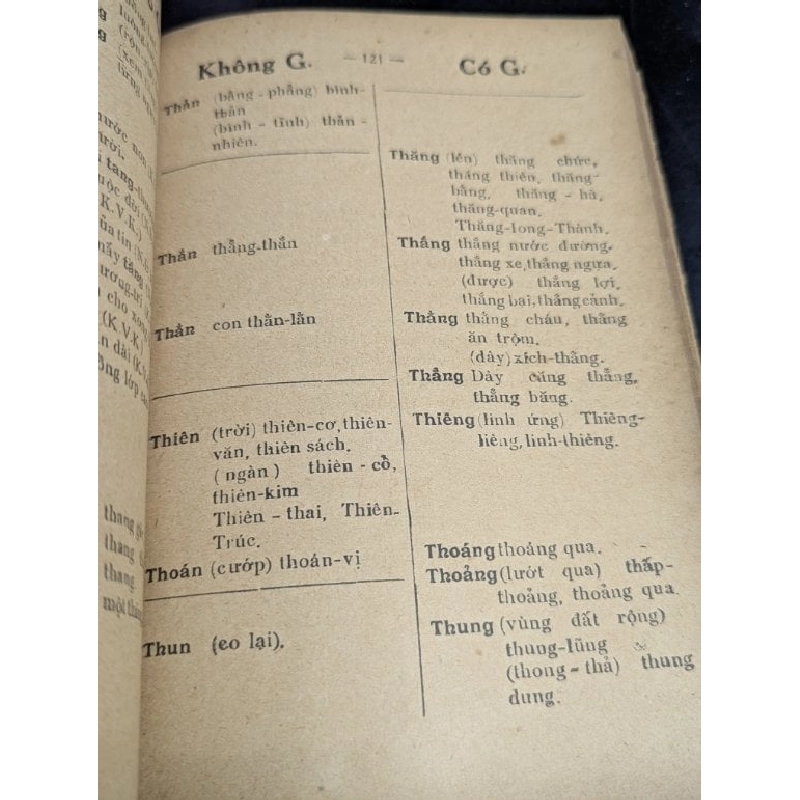 Không G.
— 121 —
Có G.
Thản (bằng - phẳng) bình-
thản
(bình - tĩnh) thản -
nhiên.
Thắn thẳng-thắn
Thằn con thằn-lằn
Thiên (trời) thiên-cơ, thiên-
văn, thiên sách.
(ngàn) thiên - cổ,
thiên-kim
Thiên - thai, Thiên-
Trúc.
Thoán (cướp) thoán-vị
Thun (co lại).
Thăng (lên) thăng chức,
thăng thiên, thăng-
bằng, thăng - hà,
thăng-quan.
Thăng-long-Thành.
Thắng thắng nước đường,
thắng xe, thắng ngựa.
(được) thắng lợi,
thắng bại, thắng cảnh.
Thằng thằng cháu, thằng
ăn trộm.
(dây) xích-thằng.
Thẳng Dây căng thẳng,
thẳng băng.
Thiêng (linh ứng) Thiêng-
liêng, linh-thiêng.
Thoáng thoáng qua.
Thoảng (lướt qua) thấp-
thoảng, thoảng qua.
Thung (vùng đất rộng)
thung-lũng
(thong - thả) thung
dung.
thang
thang
thang